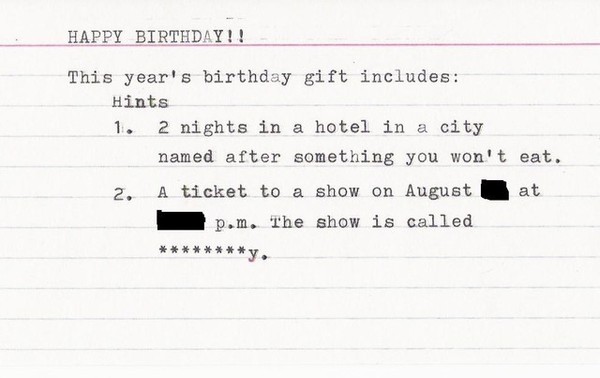 HAPPY BIRTHDAY!!
This year's birthday gift includes:
Hints
1. 2 nights in a hotel in a city
named after something you won't eat.
2. A ticket to a show on August at
p.m. The show is called
********y.